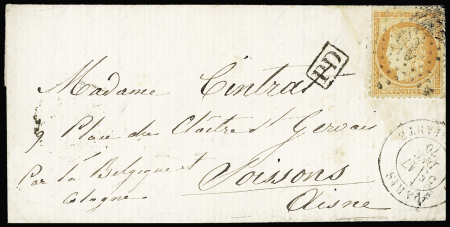 Madame Cintrat
PD
9, Place du Cloître St Gervais
Par la Belgique et
Cologne
Soissons
Aisne
PARIS